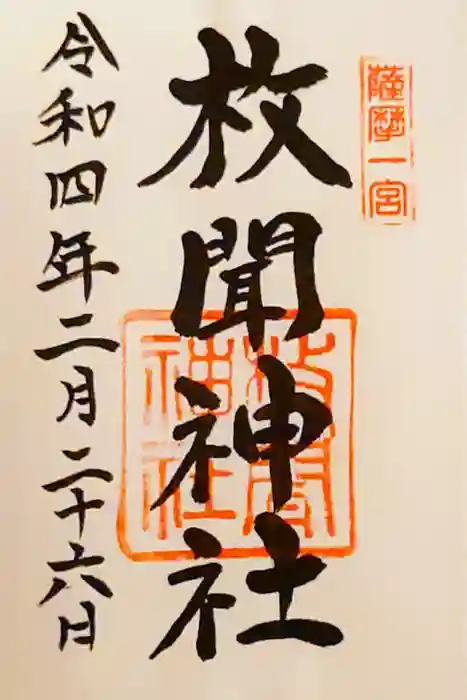 薩摩一宮
枚聞神社
枚聞
神社
令和四年二月二十六日